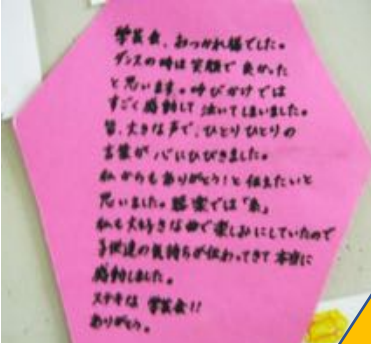 学芸会、おつかれ様でした。
ダンスの時は笑顔で良かった
と思います。呼びかけでは
すごく感動して泣いてしまいました。
皆、大きな声で、ひとりひとりの
言葉が心にひびきました。
私からもありがとう！と伝えたいと
思いました。器楽では「糸」
私も大好きな曲で楽しみにしていたので
子供達の気持ちが伝わってきて本当に
感動しました。
ステキな学芸会！！
ありがとう。